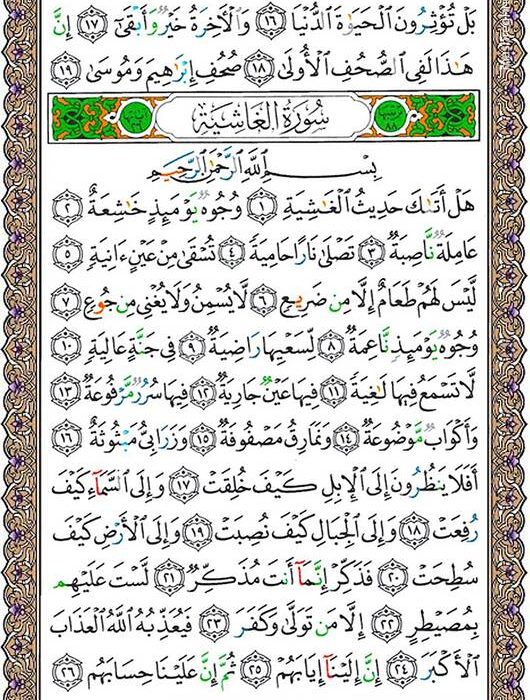 بَلْ تُؤْثِرُونَ ٱلْحَيَوٰةَ ٱلدُّنْيَا ١٦ وَٱلْآخِرَةُ خَيْرٌ وَأَبْقَىٰٓ ١٧ إِنَّ
هَٰذَا لَفِى ٱلصُّحُفِ ٱلْأُولَىٰ ١٨ صُحُفِ إِبْرَٰهِيمَ وَمُوسَىٰ ١٩
سُورَةُ الغَاشِيَةِ
بِسْمِ ٱللَّهِ ٱلرَّحْمَٰنِ ٱلرَّحِيمِ
هَلْ أَتَىٰكَ حَدِيثُ ٱلْغَٰشِيَةِ ١ وُجُوهٌ يَوْمَئِذٍ خَٰشِعَةٌ ٢
عَامِلَةٌ نَّاصِبَةٌ ٣ تَصْلَىٰ نَارًا حَامِيَةً ٤ تُسْقَىٰ مِنْ عَيْنٍ ءَانِيَةٍ ٥
لَّيْسَ لَهُمْ طَعَامٌ إِلَّا مِن ضَرِيعٍ ٦ لَّا يُسْمِنُ وَلَا يُغْنِى مِن جُوعٍ ٧
وُجُوهٌ يَوْمَئِذٍ نَّاعِمَةٌ ٨ لِّسَعْيِهَا رَاضِيَةٌ ٩ فِى جَنَّةٍ عَالِيَةٍ ١٠
لَّا تَسْمَعُ فِيهَا لَٰغِيَةً ١١ فِيهَا عَيْنٌ جَارِيَةٌ ١٢ فِيهَا سُرُرٌ مَّرْفُوعَةٌ ١٣
وَأَكْوَابٌ مَّوْضُوعَةٌ ١٤ وَنَمَارِقُ مَصْفُوفَةٌ ١٥ وَزَرَابِىُّ مَبْثُوثَةٌ ١٦
أَفَلَا يَنظُرُونَ إِلَى ٱلْإِبِلِ كَيْفَ خُلِقَتْ ١٧ وَإِلَى ٱلسَّمَآءِ كَيْفَ
رُفِعَتْ ١٨ وَإِلَى ٱلْجِبَالِ كَيْفَ نُصِبَتْ ١٩ وَإِلَى ٱلْأَرْضِ كَيْفَ
سُطِحَتْ ٢٠ فَذَكِّرْ إِنَّمَآ أَنتَ مُذَكِّرٌ ٢١ لَّسْتَ عَلَيْهِم
بِمُصَيْطِرٍ ٢٢ إِلَّا مَن تَوَلَّىٰ وَكَفَرَ ٢٣ فَيُعَذِّبُهُ ٱللَّهُ ٱلْعَذَابَ
ٱلْأَكْبَرَ ٢٤ إِنَّ إِلَيْنَآ إِيَابَهُمْ ٢٥ ثُمَّ إِنَّ عَلَيْنَا حِسَابَهُم ٢٦